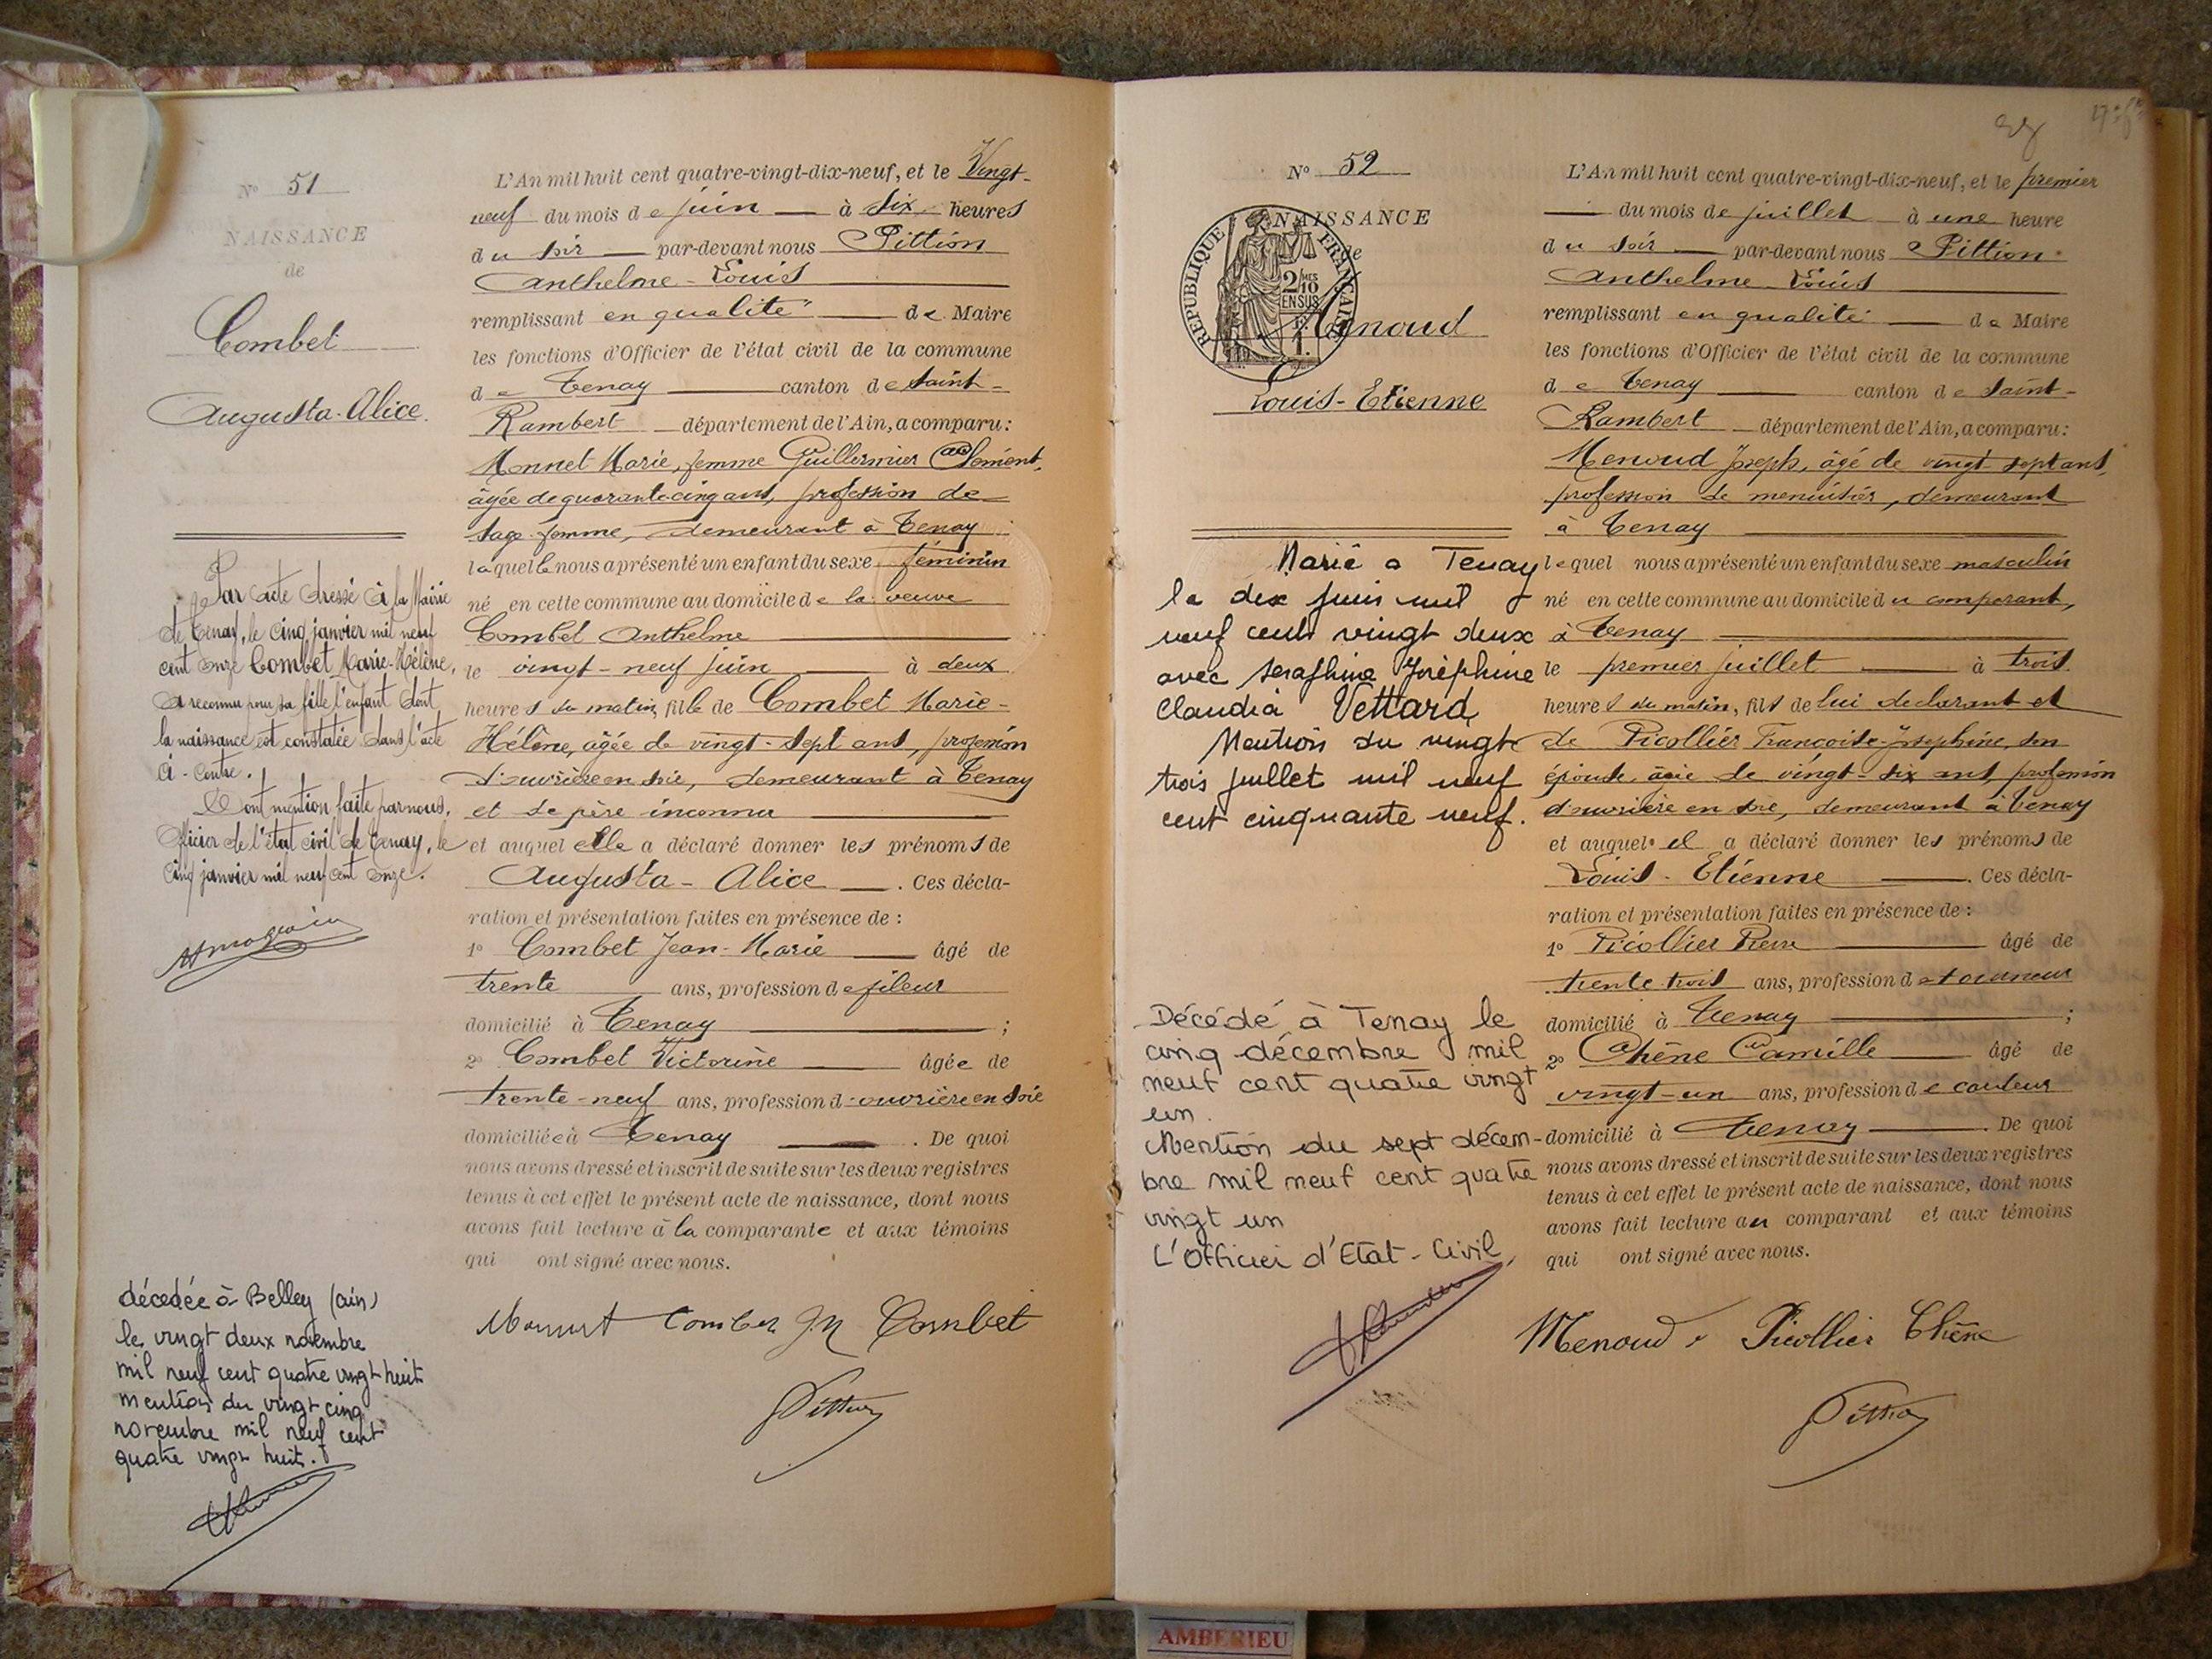 N° 51
NAISSANCE
de
Combet
Augusta-Alice.
Par acte dressé à la Mairie
de Tenay, le cinq janvier mil neuf
cent onze Combet Marie-Hélène,
a reconnu pour sa fille l'enfant dont
la naissance est constatée dans l'acte
ci-contre.
Dont mention faite par nous,
Officier de l'état civil de Tenay, le
cinq janvier mil neuf cent onze.
décédée à Belley (ain)
le vingt deux novembre
mil neuf cent quatre vingt huit
mention du vingt cinq
novembre mil neuf cent
quatre vingt huit.
L'An mil huit cent quatre-vingt-dix-neuf, et le Vingt-
neuf du mois de juin à six heures
du soir par-devant nous Pittion
Anthelme-Louis
remplissant en qualité de Maire
les fonctions d'Officier de l'état civil de la commune
de Tenay canton de Saint-
Rambert département de l'Ain, a comparu:
Monnet Marie, femme Guillermier Clément,
âgée de quarante cinq ans, profession de
sage-femme, demeurant à Tenay
laquelle nous a présenté un enfant du sexe féminin
né en cette commune au domicile de la veuve
Combet Anthelme
le vingt-neuf juin à deux
heures du matin, fille de Combet Marie-
Hélène, âgée de vingt-sept ans, profession
d'ouvrière en soie, demeurant à Tenay
et de père inconnu
et auquel elle a déclaré donner les prénoms de
Augusta-Alice. Ces décla-
ration et présentation faites en présence de:
1° Combet Jean-Marie âgé de
trente ans, profession de fileur
domicilié à Tenay ;
2° Combet Victorine âgée de
trente-neuf ans, profession d'ouvrière en soie
domiciliée à Tenay . De quoi
nous avons dressé et inscrit de suite sur les deux registres
tenus à cet effet le présent acte de naissance, dont nous
avons fait lecture à la comparante et aux témoins
qui ont signé avec nous.
Monnet Combet J M Combet
Pittion
N° 52
NAISSANCE
de
REPUBLIQUE FRANÇAISE
2/10 MES
EN SUS
Menoud
Louis-Etienne
Marié a Tenay
le dix juin mil
neuf cent vingt deux
avec Seraphine Josèphine
Claudia Vettard
Mention du vingt
trois juillet mil neuf
cent cinquante neuf.
Décédé à Tenay le
cinq décembre mil
neuf cent quatre vingt
un.
Mention du sept décem-
bre mil neuf cent quatre
vingt un
L'Officier d'Etat-Civil,
L'An mil huit cent quatre-vingt-dix-neuf, et le premier
du mois de juillet à une heure
du soir par-devant nous Pittion
Anthelme Louis
remplissant en qualité de Maire
les fonctions d'Officier de l'état civil de la commune
de Tenay canton de Saint-
Rambert département de l'Ain, a comparu:
Menoud Joseph, âgé de vingt-sept ans,
profession de menuisier, demeurant
à Tenay
lequel nous a présenté un enfant du sexe masculin
né en cette commune au domicile du comparant,
à Tenay
le premier juillet à trois
heures du matin, fils de lui déclarant et
de Picollier Françoise Josephine, son
épouse, âgée de vingt-six ans, profession
d'ouvrière en soie, demeurant à Tenay
et auquel il a déclaré donner les prénoms de
Louis-Etienne. Ces décla-
ration et présentation faites en présence de:
1° Picollier Pierre âgé de
trente-trois ans, profession de tourneur
domicilié à Tenay ;
2° Chêne Camille âgé de
vingt-un ans, profession de
domicilié à Tenay . De quoi
nous avons dressé et inscrit de suite sur les deux registres
tenus à cet effet le présent acte de naissance, dont nous
avons fait lecture au comparant et aux témoins
qui ont signé avec nous.
Menoud Picollier Chêne
Pittion
AMBERIEU